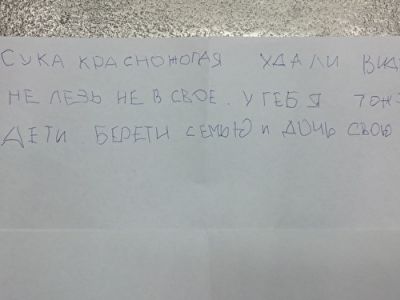 СУКА КРАСНОЖОГАЯ УДАЛИ ВИД
НЕ ЛЕЗЬ НЕ В СВОЕ. У ТЕБЯ ТОЖ
ДЕТИ БЕРЕГИ СЕМЬЮ И ДОЧЬ СВОЮ